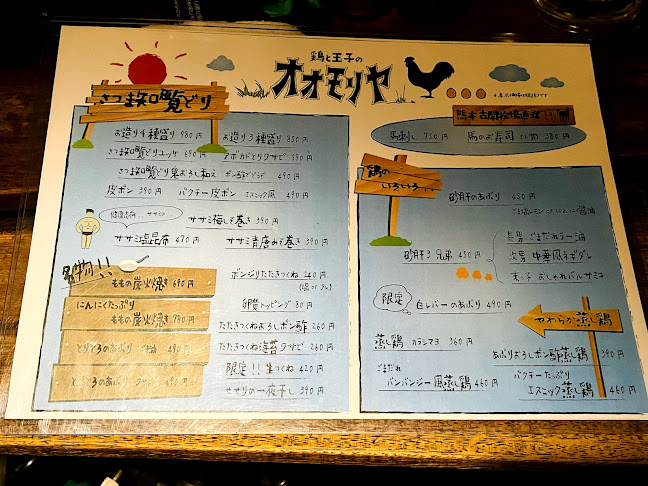 鶏と玉子の
オオモリヤ
さつま知覧どり
お造り4種盛り 980円
お造り3種盛り 850円
さつま知覧どりユッケ 690円
アボカドとりワサビ 590円
さつま知覧どり鬼おろし和え ポン酢でどうぞ 490円
皮ポン 390円
パクチー皮ポン エスニック風 490円
ササミ梅しそ巻き 390円
ササミ塩昆布 470円
ササミ青唐みそ巻き 390円
名物!!
ももの炭火焼き 690円
にんにくたっぷり
ももの炭火焼き 790円
とりとろのあぶり 490円
とりとろのあぶり
ボンジリたたきつくね 240円
(塩 or タレ)
卵黄トッピング 80円
たたきつくねおろしポン酢 260円
たたきつくね海苔ワサビ 260円
限定!! 生つくね 420円
せせりの一夜干し 390円
熊本古閑牧場直送!!
馬刺し 750円
馬のお寿司 (二カン) 380円
鶏のいろいろ
砂肝のあぶり 450円
ごま塩レモン or にんにく醤油
砂肝3兄弟 490円
長男 ごまだれラー油
次男 中華風ネギダレ
末っ子 おしゃれバルサミコ
限定
白レバーのあぶり 490円
やわらか蒸し鶏
蒸し鶏 カラシマヨ 360円
あぶりおろしポン酢蒸し鶏 390円
ごまだれ
バンバンジー風蒸し鶏 460円
パクチーたっぷり
エスニック蒸し鶏 460円